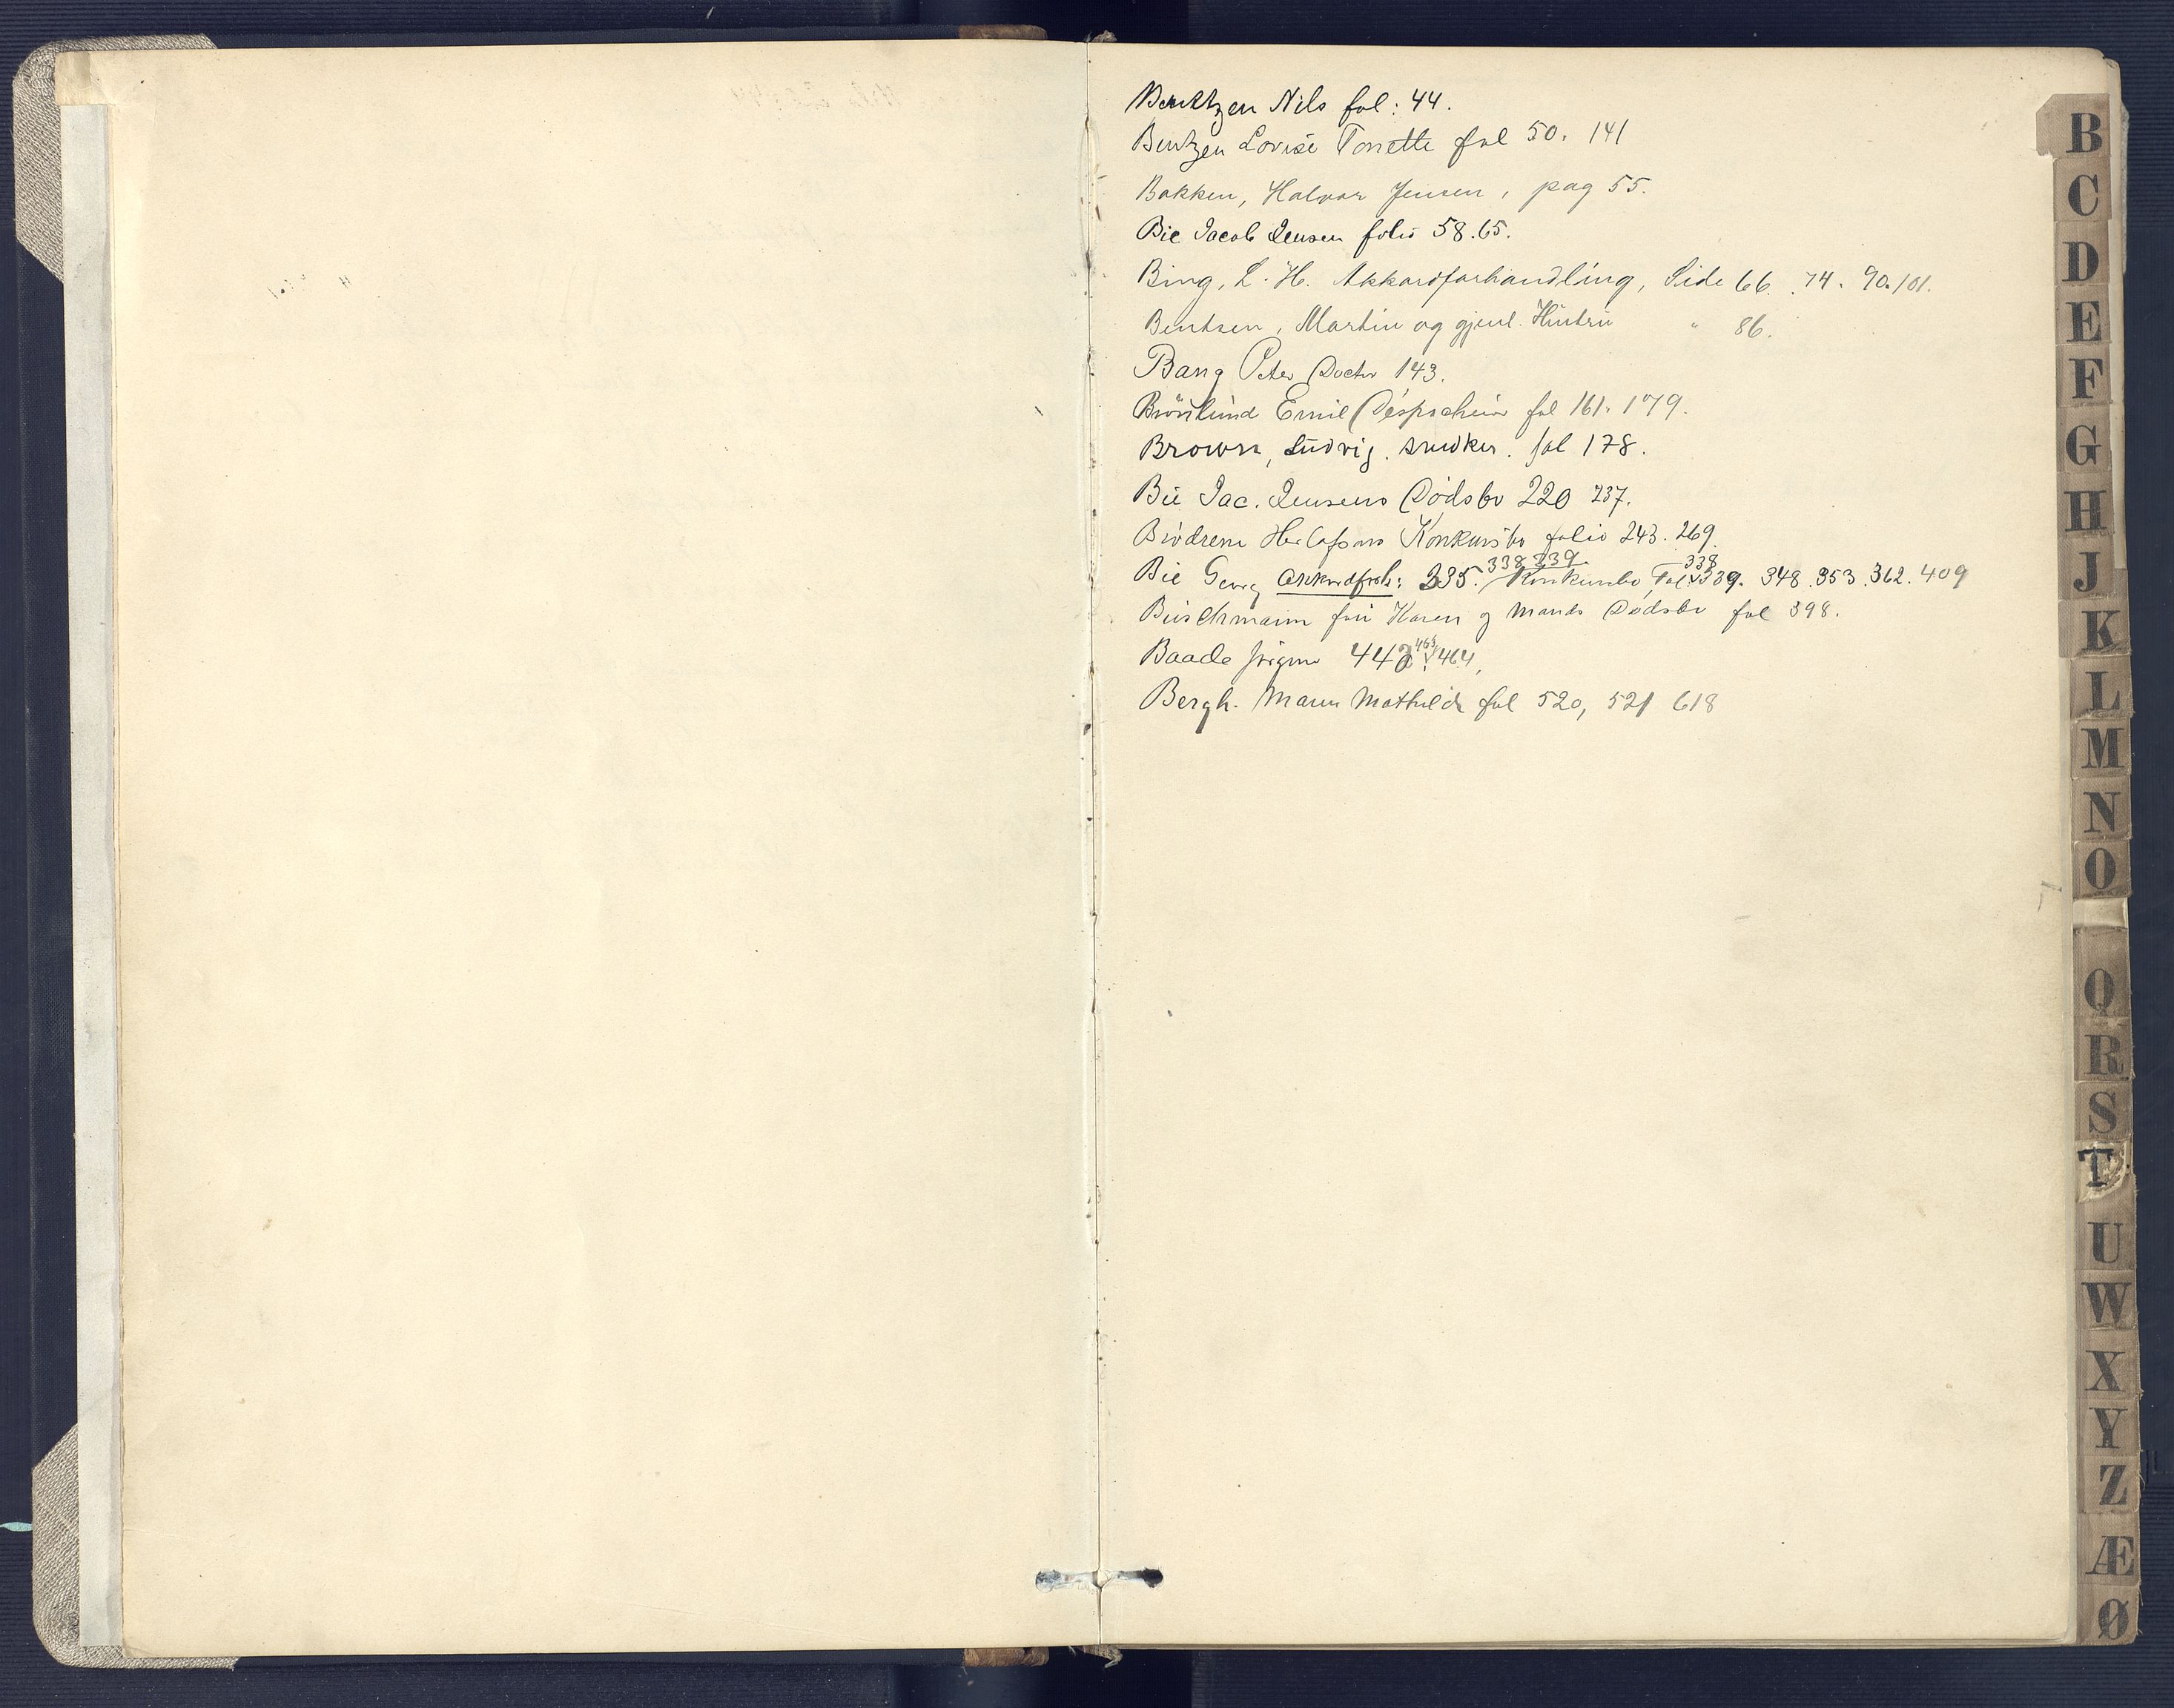 Bentzen Nils fol: 44.
Bentzen Lovise Tonette fol 50. 141
Bakken, Halvor Jensen, pag 55.
Bie Jacob Jensen folio 58. 65.
Bing, L. H. Akkordforhandling, Side 66. 74. 90. 101.
Bentsen, Martin og gjenl. Hustru " 86.
Bang Peter Doctor 143.
Emil fol 161. 179.
Brown, Ludvig. snedker. fol 178.
Bie Jac. Jensens Dødsbo 220 237.
Brødrene Konkursbo folio 243. 269.
338 339 338
Bie Georg Akkordforh: 335. Konkursbo, Fol. 339. 348. 353. 362. 409
Buschmann fru Karen og Mands Dødsbo fol 398.
Baade 443 463 464,
Bergh. Maren Mathilde fol 520, 521 618
B
C
D
E
F
G
H
J
K
L
M
N
O
Q
R
S
T
U
W
X
Y
Z
Æ
Ø